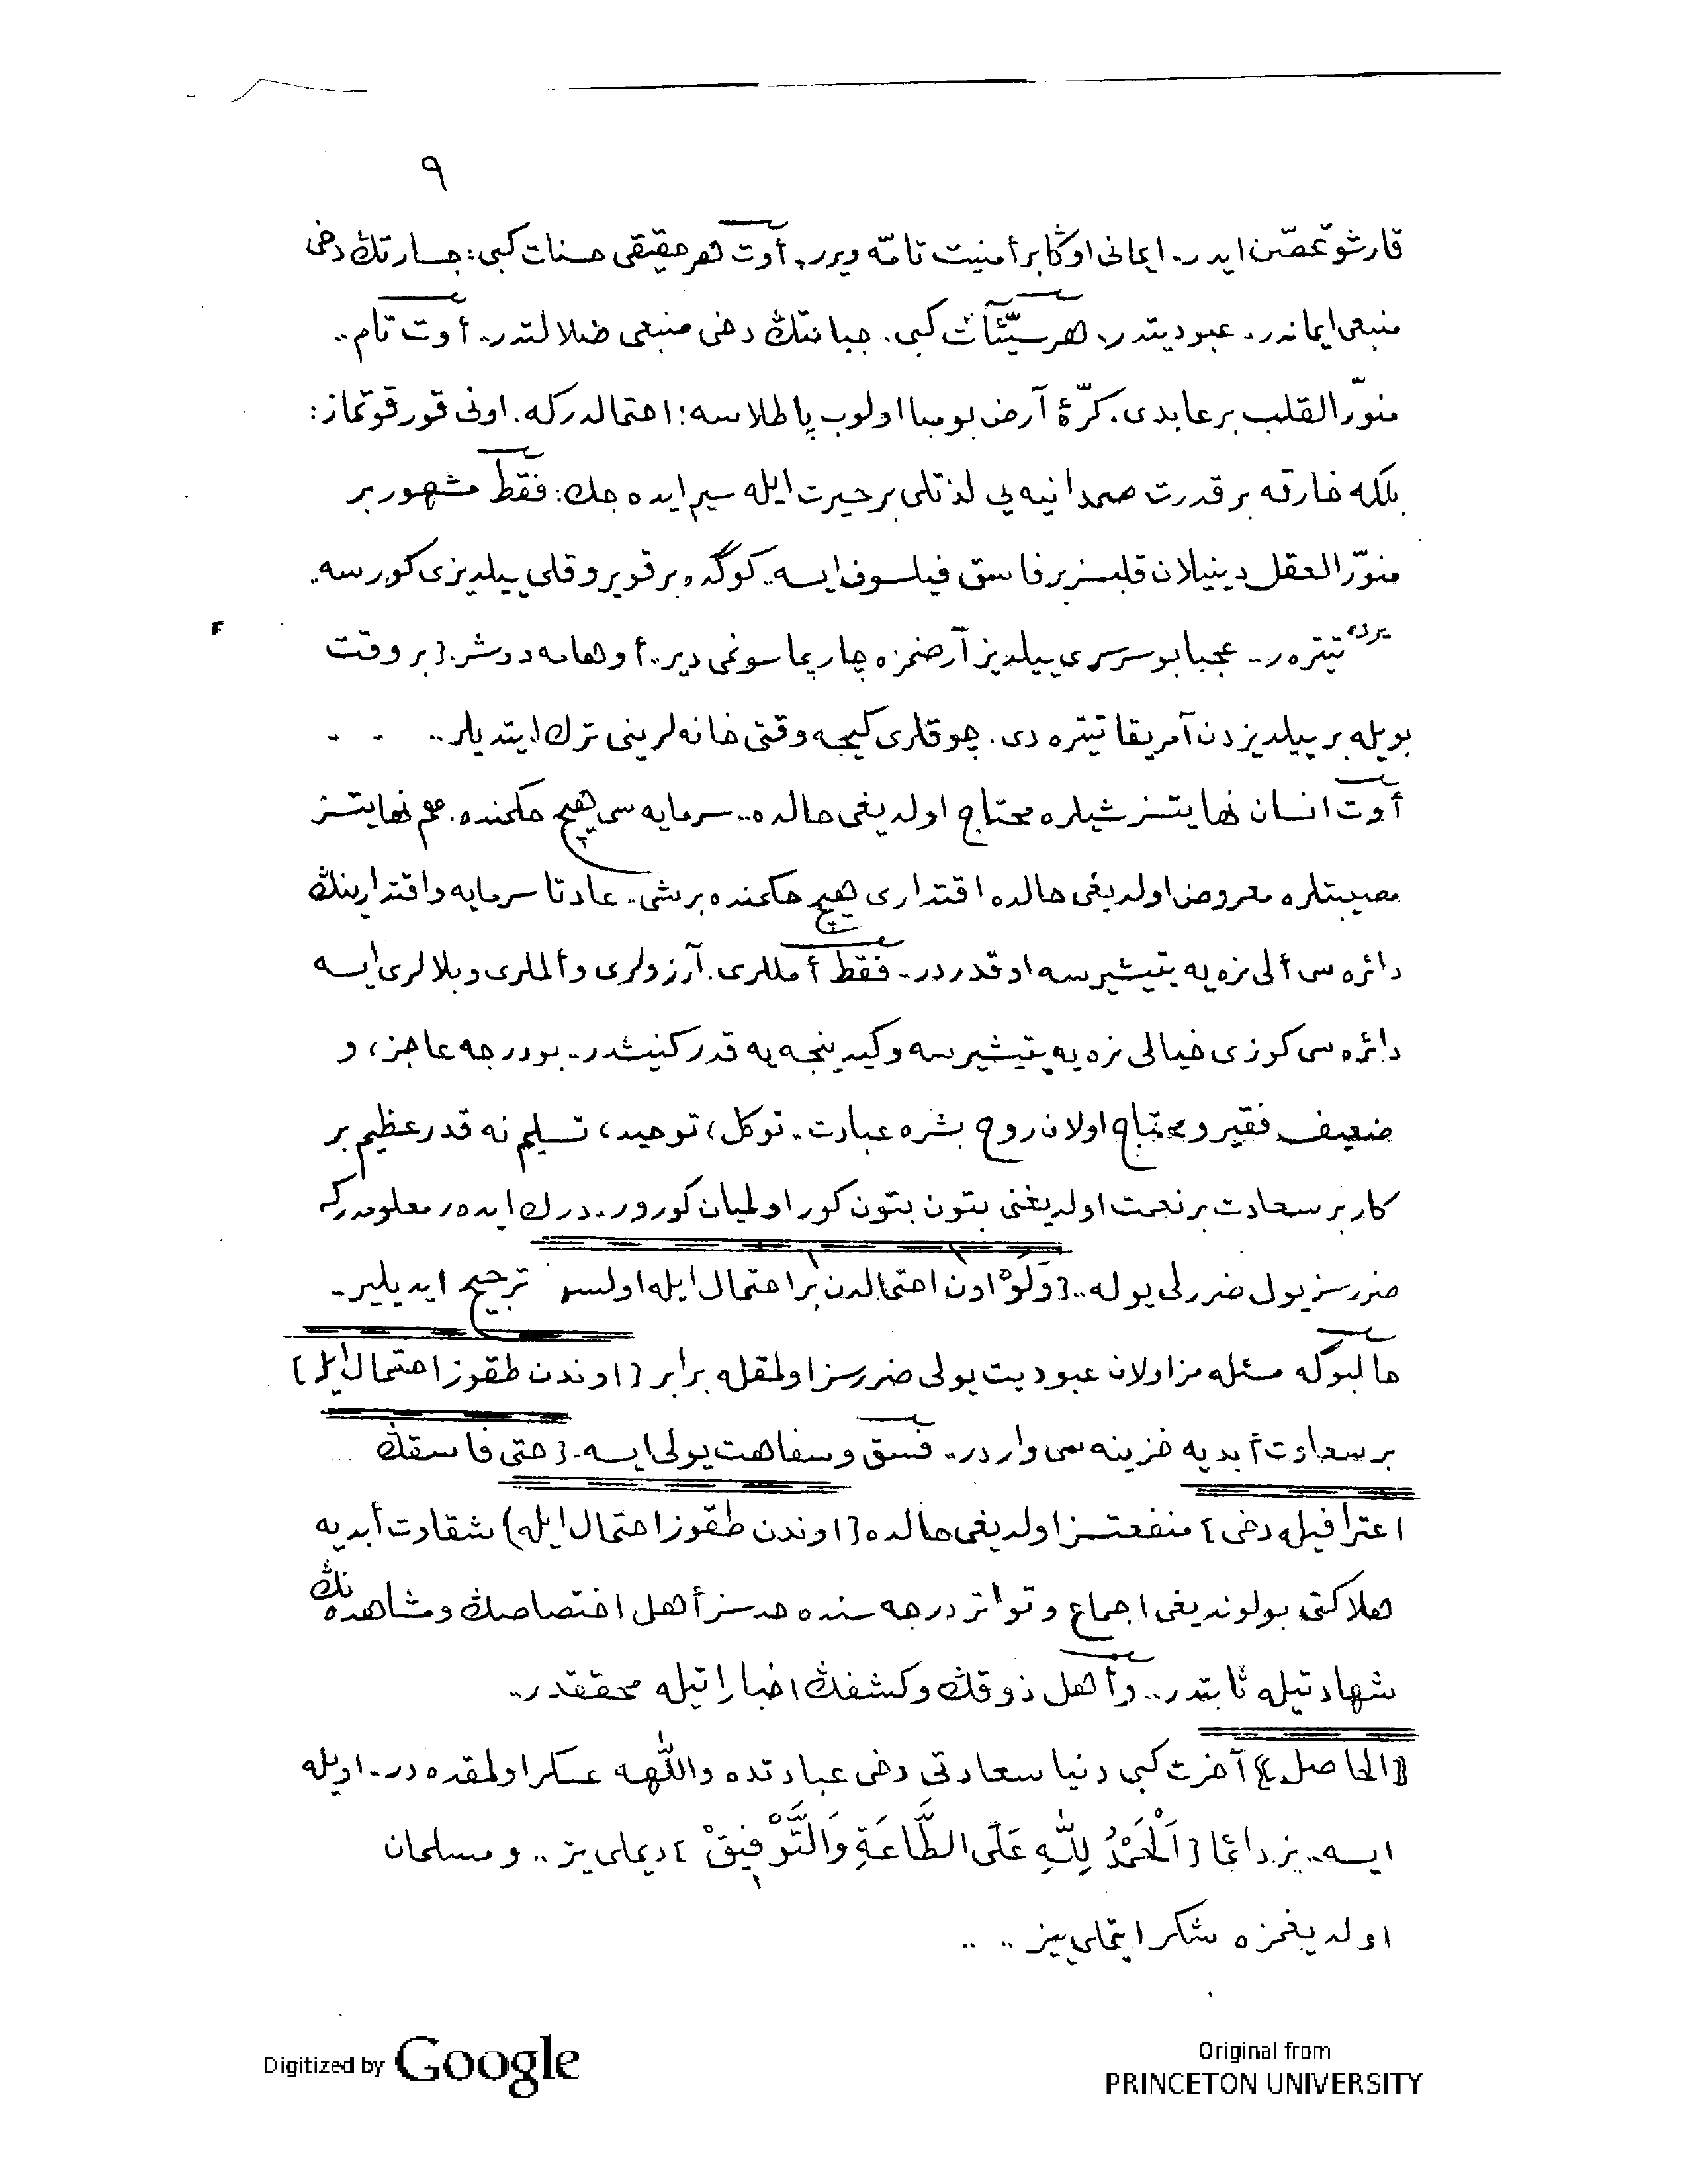 ٩
قارشو تحصّن ايدر. ايمانى اوڭا بر أمنيت تامّه ويرر. أوت هر حقيقى حسنات كبى: جسارتڭ دخى
منبعى ايماندر. عبوديتدر. هر سيّئات كبى. جبانتڭ دخى منبعى ضلالتدر. أوت تام..
منوّر القلب بر عابدى. كرّۀ آرض بومبا اولوب پاطلاسه: احتمالدركه. اونى قورقوتماز:
بلكه خارقه بر قدرت صمدانيه يى لذتلى بر حيرت ايله سير ايده جك: فقط مشهور بر
منوّر العقل دينيلان قلبسز بر فاسق فيلسوف ايسه.. كوگده بر قويروقلى ييلديزى كورسه.
يرده تيتره ر.. عجبا بو سرسرى ييلديز آرضمزه چارپماسونمى دير.. أوهامه دوشر. { بر وقت
بويله بر ييلديزدن آمريقا تيتره دى. چوقلرى كيجه وقتى خانه لرينى ترك ايتديلر..
أوت انسان نهايتسز شيلره محتاج اولديغى حالده.. سرمايه سى هيچ حكمنده. هم نهايتسز
مصيبتلره معروض اولديغى حالده اقتدارى هيچ حكمنده برشى. عادتا سرمايه و اقتدارينڭ
دائره سى ألى نره يه يتيشيرسه او قدردر.. فقط أمللرى. آرزولرى و ألملرى و بلالرى ايسه
دائره سى كوزى خيالى نره يه يتيشيرسه و كيدينجه يه قدر كنيشدر. بو درجه عاجز، و
ضعيف فقير و محتاج اولان روح بشره عبادت. توكل، توحيد، تسليم نه قدر عظيم بر
كار بر سعادت بر نعمت اولديغنى بتون بتون كور اولميان كورور.. درك ايدەر معلومدركه
ضررسز يول ضررلى يوله.. { وَلَوْ اون احتمالدن بر احتمال ايله اولسه ترجيح ايديلير.
حالبوكه مسئله مز اولان عبوديت يولى ضررسز اولمقله برابر { اوندن طقوز احتمال ايله }
بر سعادت أبديه خزينه سى واردر.. فسق و سفاهت يولى ايسه. { حتى فاسقڭ
اعترافيله دخى } منفعتسز اولديغى حالده { اوندن طقوز احتمال ايله ) شقاوت أبديه
هلاكتى بولونديغى اجماع و تواتر درجه سنده حدسز أهل اختصاصڭ و مشاهده نڭ
شهادتيله ثابتدر.. و أهل ذوقڭ و كشفڭ اخباراتيله محققدر..
{ الحاصل } آخرت كبى دنيا سعادتى دخى عبادتده و اللّٰهه عسكر اولمقده در. اويله
ايسه.. بز دائما { اَلْحَمْدُ لِلّٰهِ عَلَى الطَّاعَةِ وَالتَّوْفِيقْ } ديملى يز.. و مسلمان
اولديغمزه شكر ايتملى ييز.. ..
Digitized by Google
Original from
PRINCETON UNIVERSITY